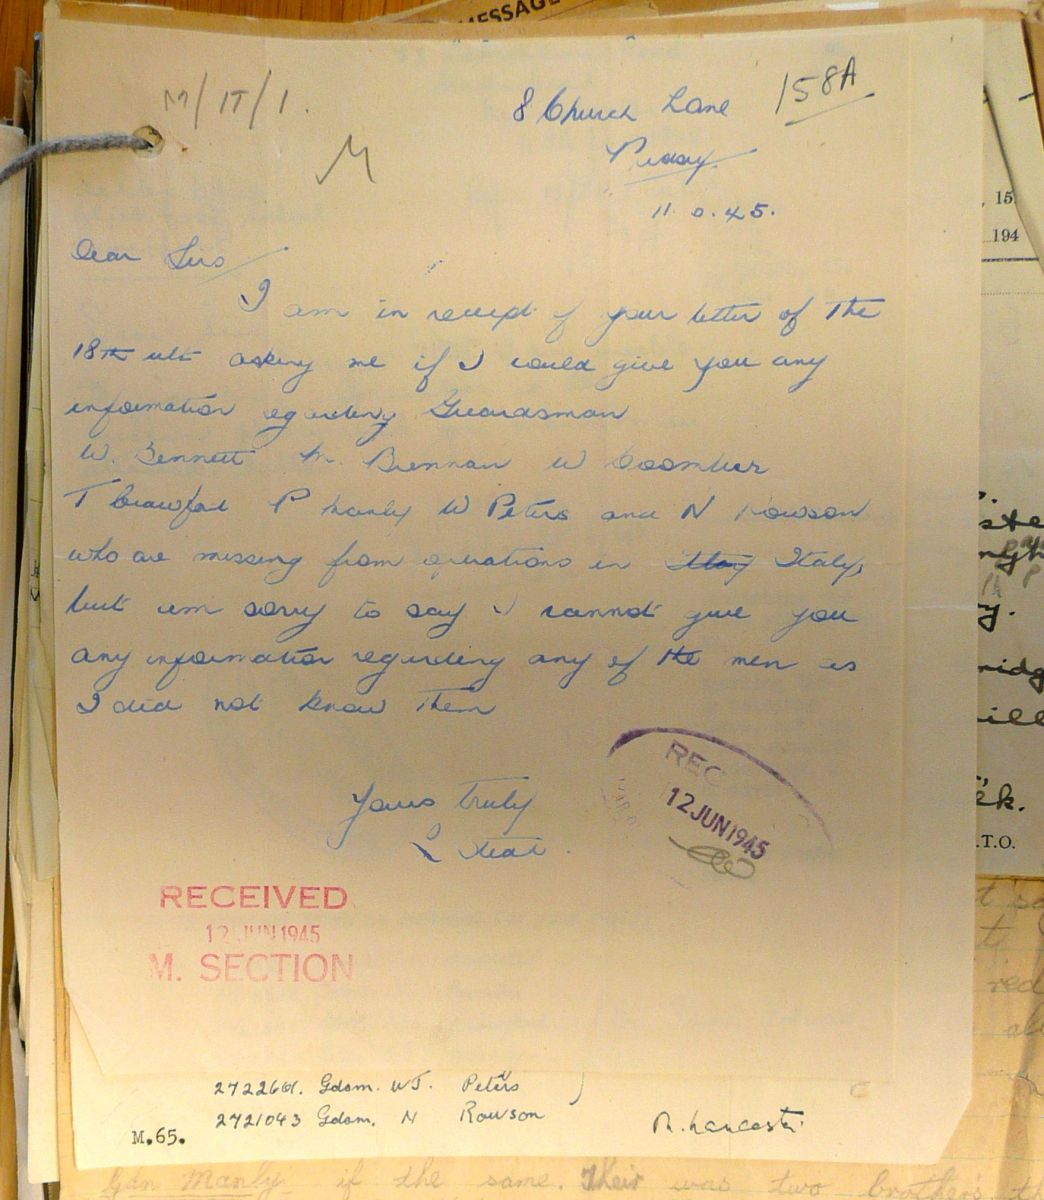 MESSAGE
M/IT/1.
8 Church Lane
158A
M
11. 6. 45.
Dear Sirs
I am in receipt of your letter of the
18th ult asking me if I could give you any
information regarding Guardsman
W. Bennett M. Brennan W Coomber
T Crawford P Manly W Peters and N Rowson
who are missing from operations in Italy,
but am sorry to say I cannot give you
any information regarding any of the men as
I did not know them
Yours Truly
L
REC
12 JUN 1945
RECEIVED
12 JUN 1945
M. SECTION
Gdsm. WJ. Peters
2721043 Gdsm. N Rowson
M.65.
R. Lancaster
, 15
194
.T.O.
Gdn Manly if the same. Their was two brother's